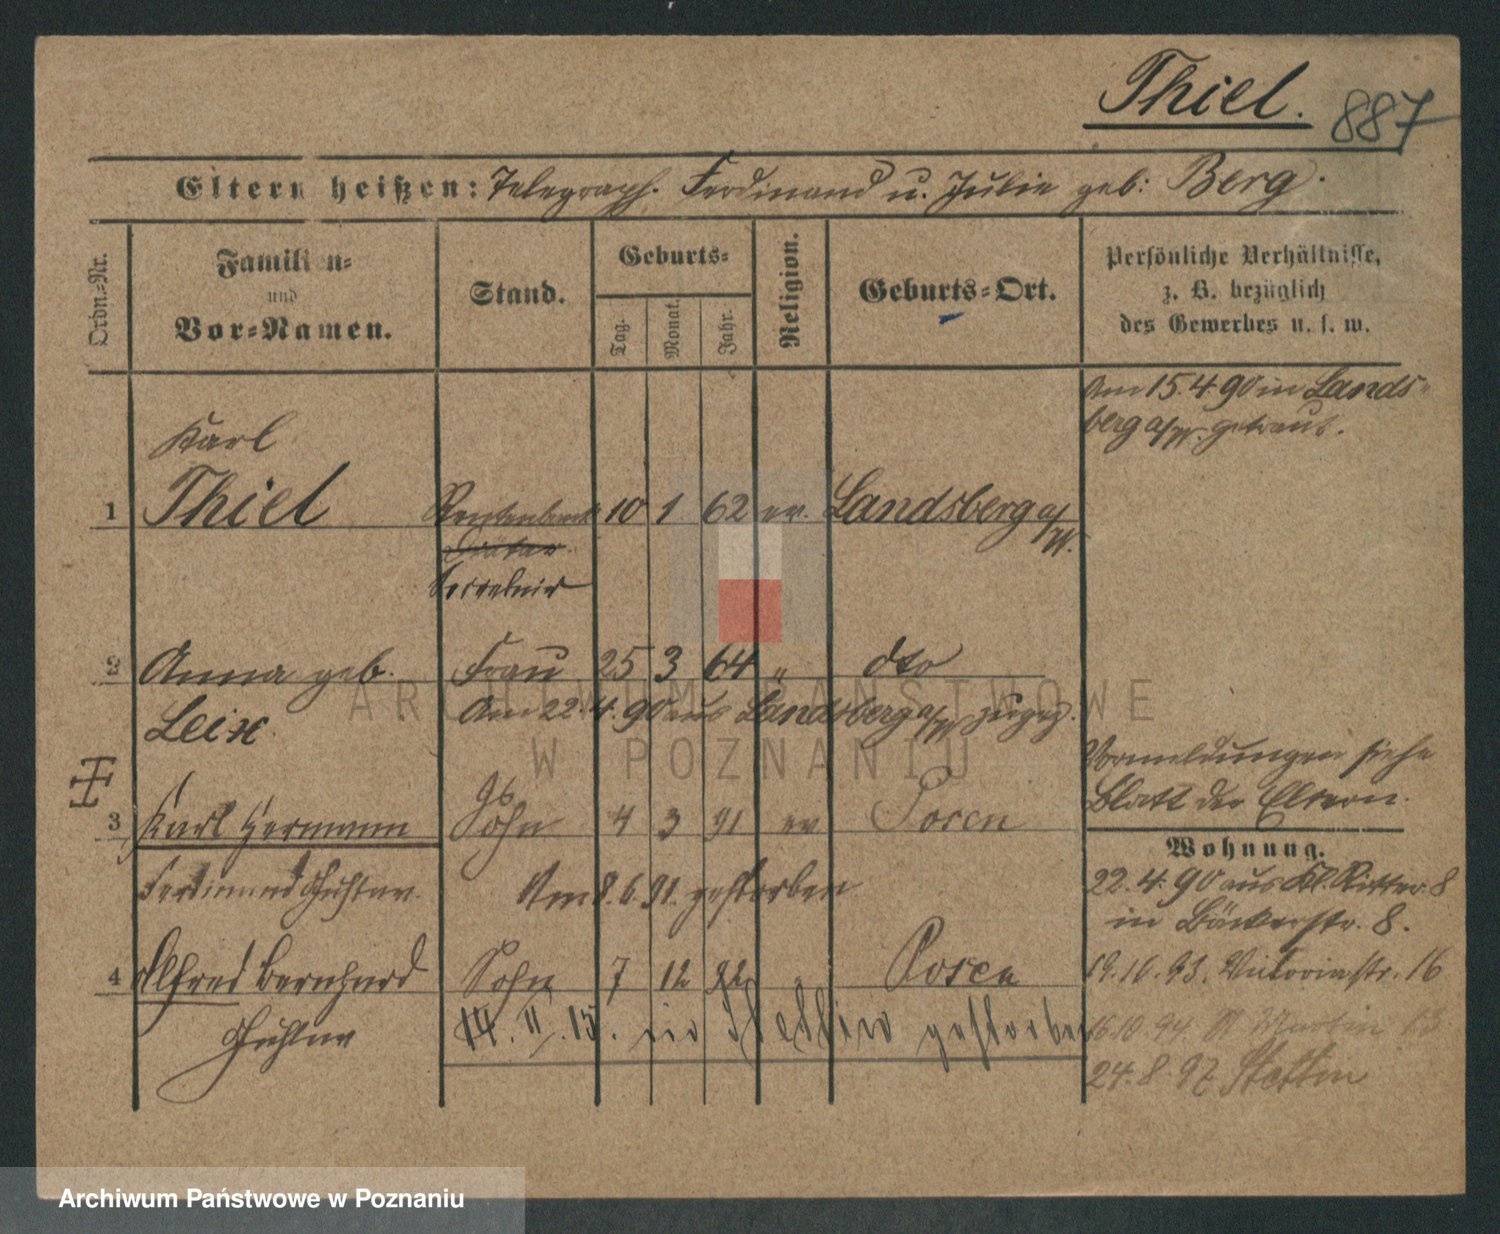 Thiel.
887
Eltern heißen: Telegraph. Ferdinand u. Julie geb: Berg.
Ordn.-Nr.
Familien-
und
Vor-Namen.
Stand.
Geburts-
Tag.
Monat.
Jahr.
Religion.
Geburts-Ort.
Persönliche Verhältnisse,
z. B. bezüglich
des Gewerbes u. s. w.
Am 15.4.90 in Lands-
berg a/W. getraut.
Karl
1 Thiel 10 1 62 ev. Landsberg a/W.
Diätar
2 Anna geb. Frau 25 3 64 " dto
Leix
Am 22.4.90 aus Landsberg a/W zugez.
Vormeldungen siehe
Blatt der Eltern.
3 Karl Hermann Sohn 4 3 91 ev Posen
Ferdinand Gustav.
Am 8.6.91 gestorben
Wohnung.
22.4.90 aus Kl. Ritter. 8
in Bäckerstr. 8.
4 Alfred Bernhard Sohn 7 12 92 " Posen
Gustav
19.10.93. Victoriastr. 16
14. II. 15. in Stettin gestorben
16.10.94. St Martin 13
24.8.97 Stettin
ARCHIWUM PAŃSTWOWE
W POZNANIU
Archiwum Państwowe w Poznaniu